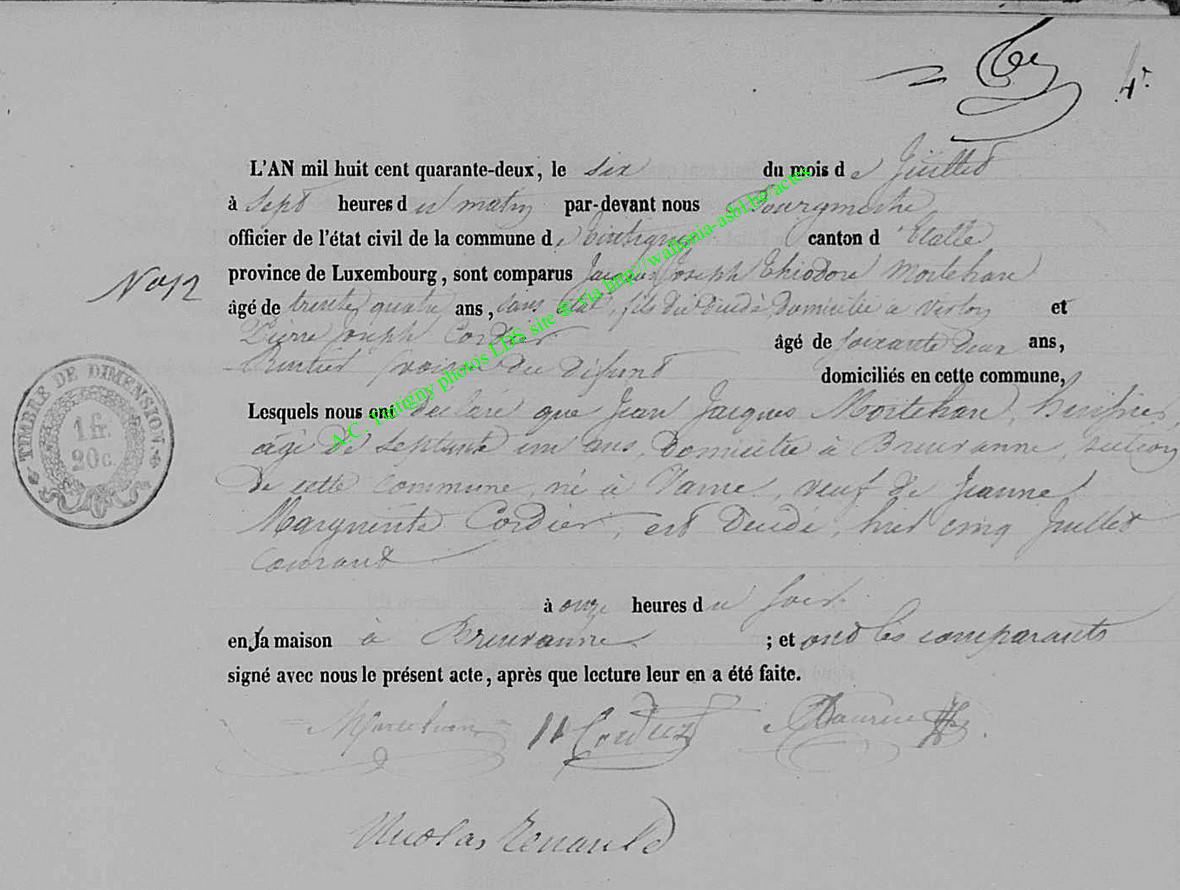 4.
L'AN mil huit cent quarante-deux, le six du mois de Juillet
à Sept heures du matin par-devant nous Bourgmestre
officier de l'état civil de la commune de Tintigny canton d'Etalle
N° 12
province de Luxembourg, sont comparus Jacques Joseph Théodore Mortehan
âgé de trente quatre ans, sans état, fils du décédé, domicilié à Virton et
Pierre Joseph Cordier âgé de soixante deux ans,
Rentier voisin du défunt domiciliés en cette commune,
Lesquels nous ont déclaré que Jean Jacques Mortehan,
âgé de septante un ans, domicilié à Breuvanne, section
de cette commune, né à veuf de Jeanne
Marguerite Cordier, est décédé, hier cinq Juillet
courant
à onze heures du soir
en la maison à Breuvanne ; et ont les comparants
signé avec nous le présent acte, après que lecture leur en a été faite.
Mortehan JJ Cordier
Nicolas Renauld
TIMBRE DE DIMENSION.
1 fr.
20 c.
A.C. Tintigny photos LDS site & via http://wallonia-asbl.be/actes